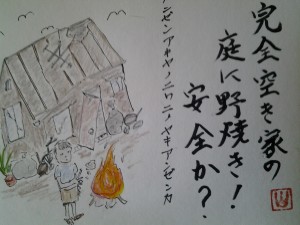 完全空き家の
庭に野焼き!
安全か?
ンゼンアキヤノニワニノヤキアンゼンカ